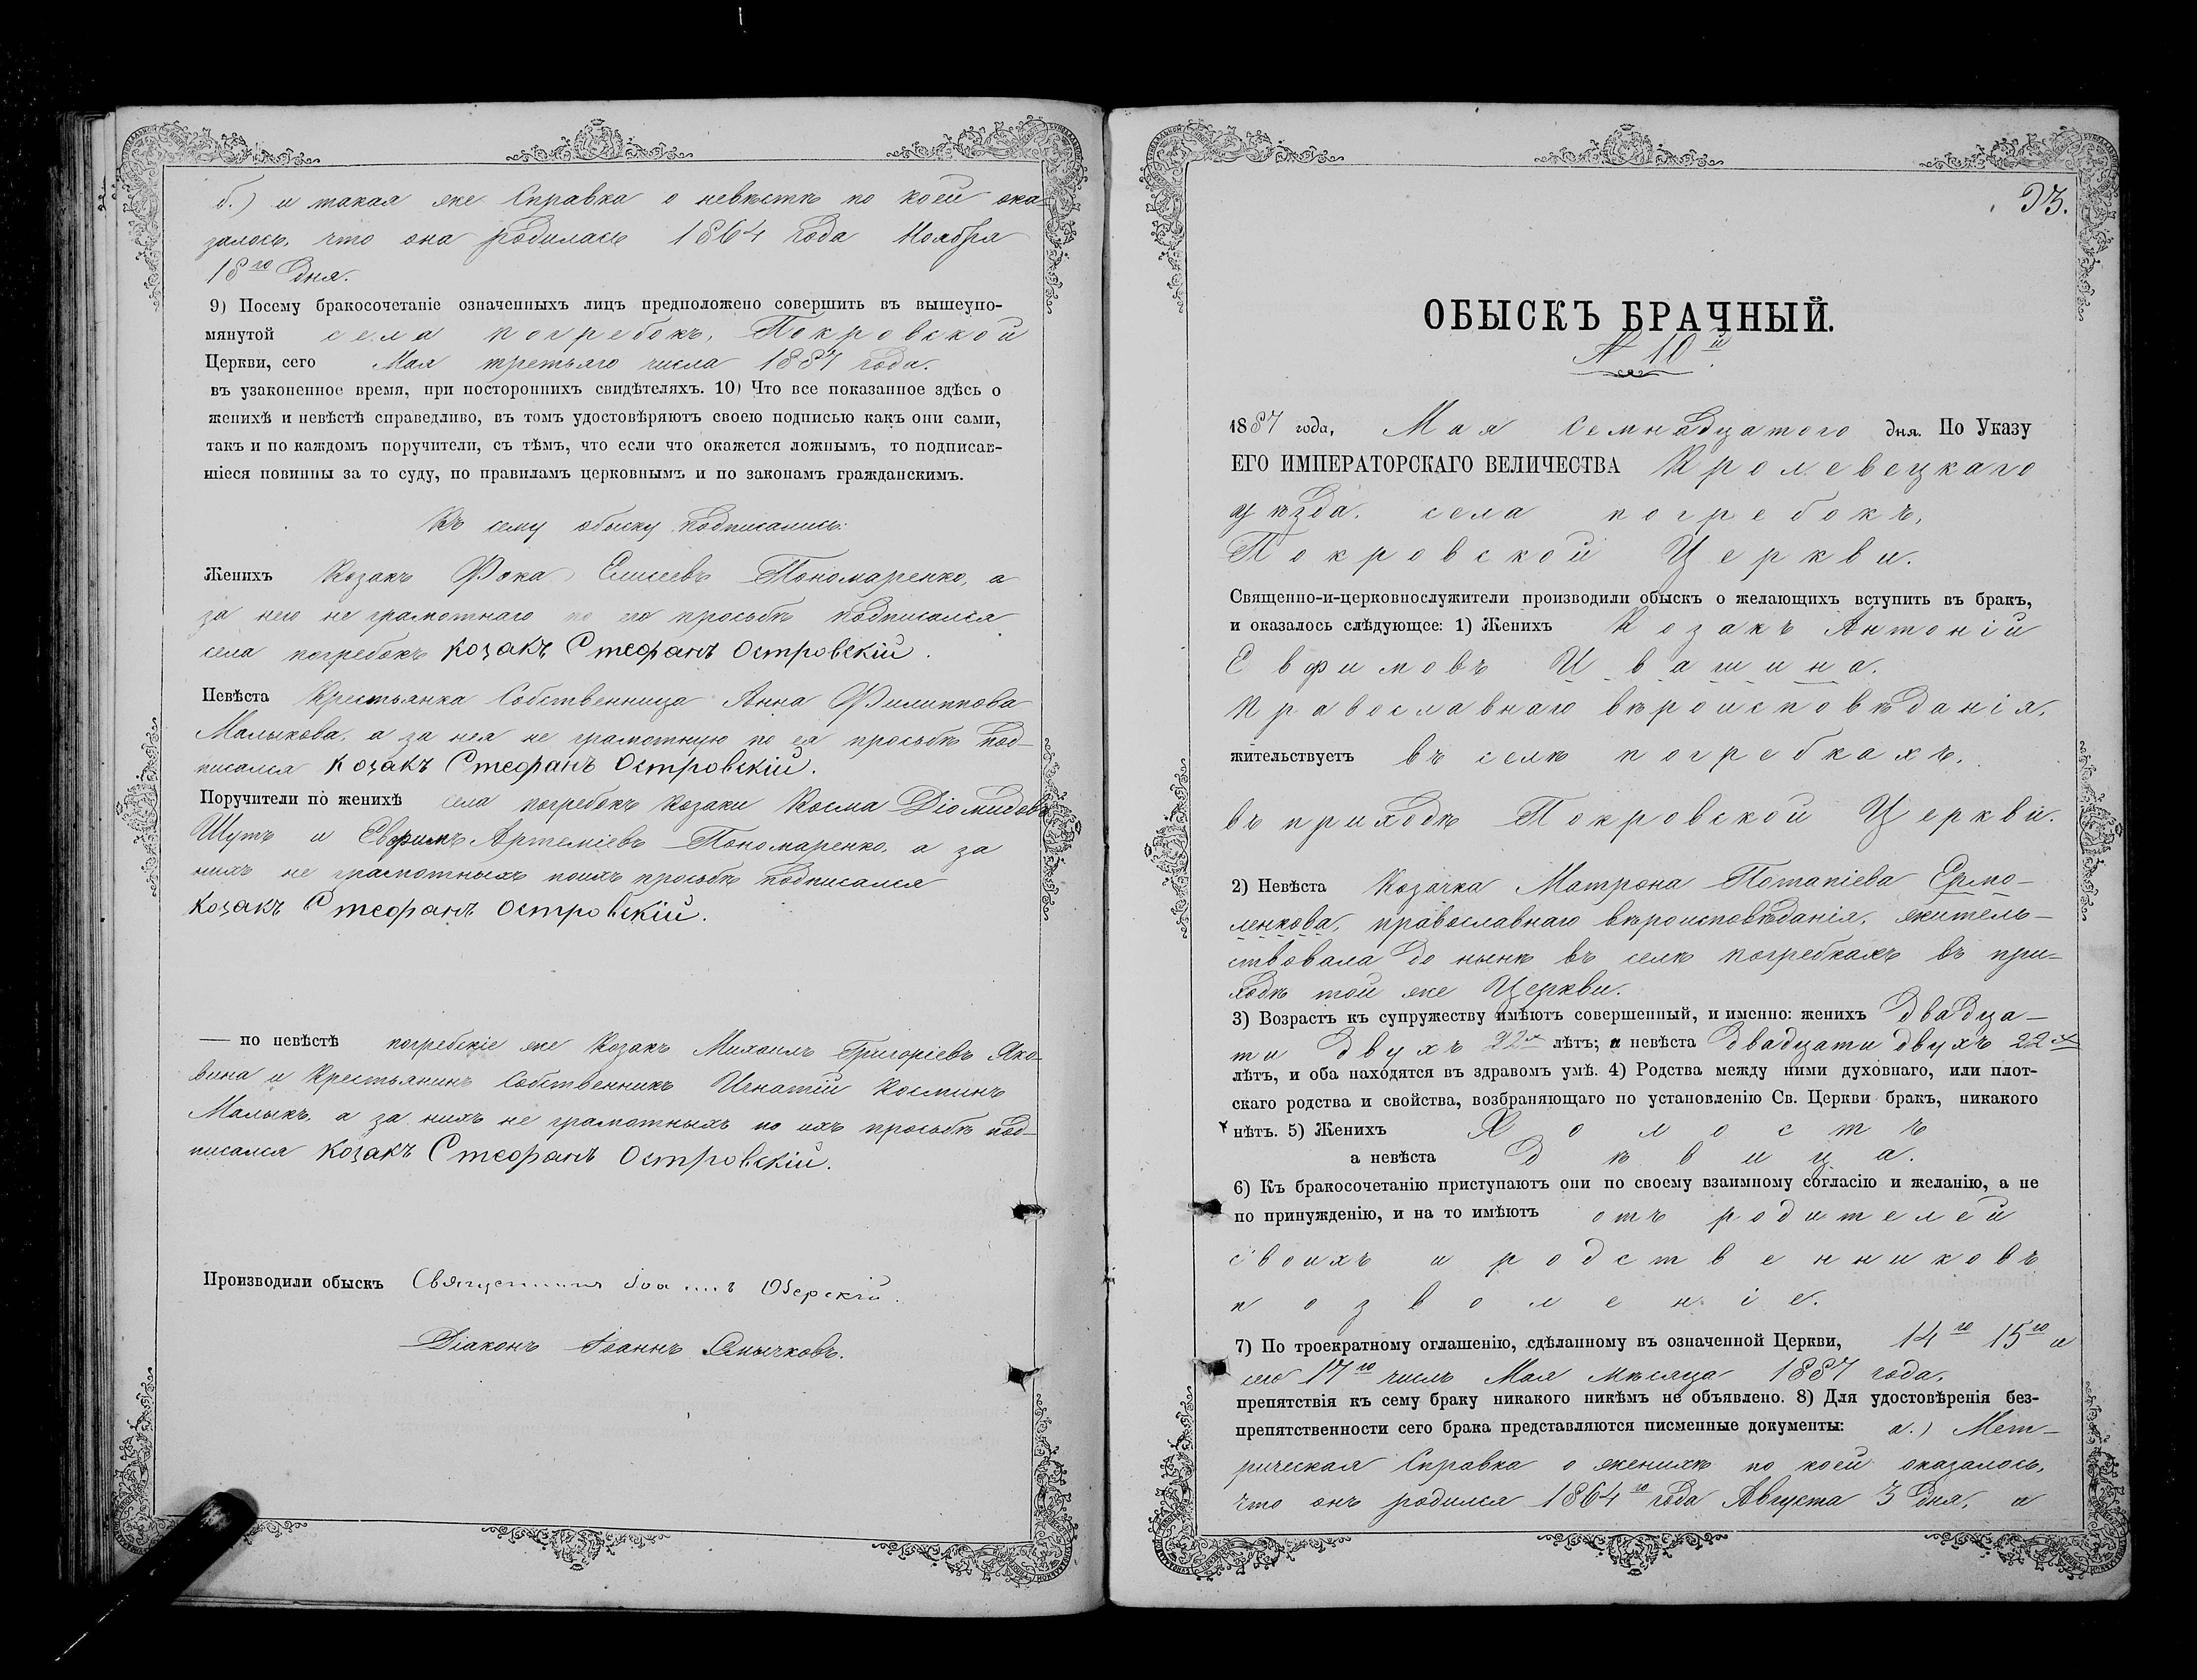 б.) и такая же Справка о невѣстѣ по коей ока-
залось, что она родилась 1864 года Ноября
18го дня.
9) Посему бракосочетаніе означенныхъ лицъ предположено совершить въ вышеупо-
мянутой села погребокъ, Покровской
Церкви, сего Мая третьяго числа 1887 года.
въ узаконенное время, при постороннихъ свидѣтеляхъ. 10) Что все показанное здѣсь о
женихѣ и невѣстѣ справедливо, въ томъ удостовѣряютъ своею подписью какъ они сами,
такъ и по каждомъ поручители, съ тѣмъ, что если что окажется ложнымъ, то подписав-
шіеся повинны за то суду, по правиламъ церковнымъ и по законамъ гражданскимъ.
Къ сему обыску подписались:
Женихъ Козакъ Фока Елисеевъ Пономаренко, а
за него не грамотнаго по его просьбѣ подписался
села погребокъ козакъ Стефанъ Островскій.
Невѣста Крестьянка Собственница Анна Филиппова
Малыкова, а за нея не грамотную по ея просьбѣ под-
писался козакъ Стефанъ Островскій.
Поручители по женихѣ села погребокъ Козаки Косма Діомидовъ
Шутъ и Евфимъ Артеміевъ Пономаренко, а за
нихъ не грамотныхъ поихъ просьбѣ подписался
козакъ Стефанъ Островскій.
— по невѣстѣ погребскіе же Козакъ Михаилъ Григоріевъ Яко-
вина и Крестьянинъ Собственникъ Игнатій Косминъ
Малыкъ, а за нихъ не грамотныхъ по ихъ просьбѣ под-
писался козакъ Стефанъ Островскій.
Производили обыскъ Священникъ Іоаннъ Озерскій.
Діаконъ Іоаннъ Смычковъ.
93.
ОБЫСКЪ БРАЧНЫЙ.
№ 10й
1887 года, Мая семнадцатого дня. По Указу
ЕГО ИМПЕРАТОРСКАГО ВЕЛИЧЕСТВА Кролевецкаго
уѣзда, села погребокъ,
Покровской Церкви.
Священно-и-церковнослужители производили обыскъ о желающихъ вступить въ бракъ,
и оказалось слѣдующее: 1) Женихъ Козакъ Антоній
Евфимовъ Ивашина,
православнаго вѣроисповѣданія,
жительствуетъ въ селѣ погребкахъ,
въ приходѣ Покровской Церкви.
2) Невѣста Козачка Матрона Потапіева Ермо-
ленкова, православнаго вѣроисповѣданія, житель-
ствовала до нынѣ въ селѣ погребкахъ въ при-
ходѣ той же Церкви.
3) Возрастъ къ супружеству имѣютъ совершенный, и именно: женихъ двадца-
ти двухъ 22х лѣтъ; а невѣста двадцати двухъ 22х
лѣтъ, и оба находятся въ здравомъ умѣ. 4) Родства между ними духовнаго, или плот-
скаго родства и свойства, возбраняющаго по установленію Св. Церкви бракъ, никакого
нѣтъ. 5) Женихъ Холостъ
а невѣста дѣвица.
6) Къ бракосочетанію приступаютъ они по своему взаимному согласію и желанію, а не
по принужденію, и на то имѣютъ отъ родителей
своихъ и родственниковъ
позволеніе.
7) По троекратному оглашенію, сдѣланному въ означенной Церкви, 14го 15го и
сего 17го числъ Мая мѣсяца 1887 года,
препятствія къ сему браку никакого никѣмъ не объявлено. 8) Для удостовѣренія без-
препятственности сего брака представляются писменные документы: а.) Мет-
рическая Справка о женихѣ по коей оказалось,
что онъ родился 1864го года Августа 3 дня, и